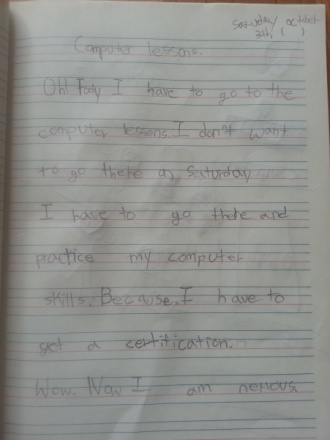 Saturday October
30th ( )
Computer lessons.
Oh! Tody I have to go to the
computer lessons. I don't want
to go there on Saturday
I have to go there and
practice my computer
skills. Because. I have to
get a certification.
Wow. Now I am nervous